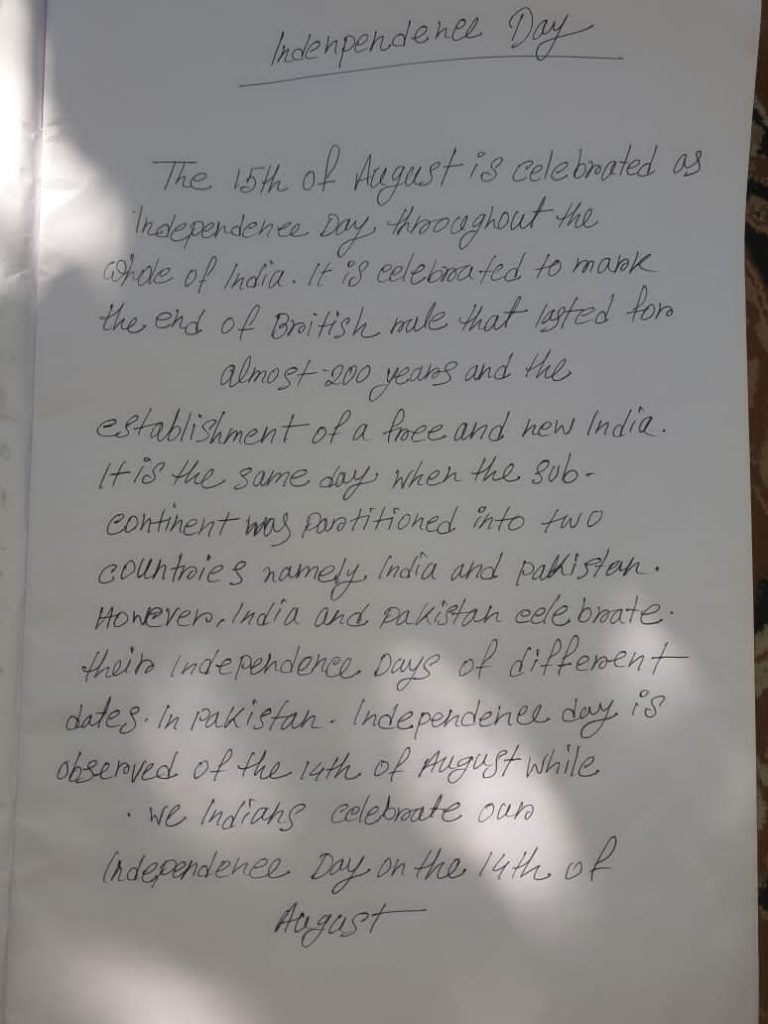 Indenpendence Day
The 15th of August is celebrated as
Independence Day throughout the
whole of India. It is celebrated to mark
the end of British rule that lasted for
almost 200 years and the
establishment of a free and new India.
It is the same day when the sub-
continent was partitioned into two
countries namely India and pakistan.
However, India and pakistan celebrate.
their independence Days of different
dates. In pakistan. Independence day is
observed of the 14th of August while
. we Indians celebrate our
Independence Day on the 14th of
August